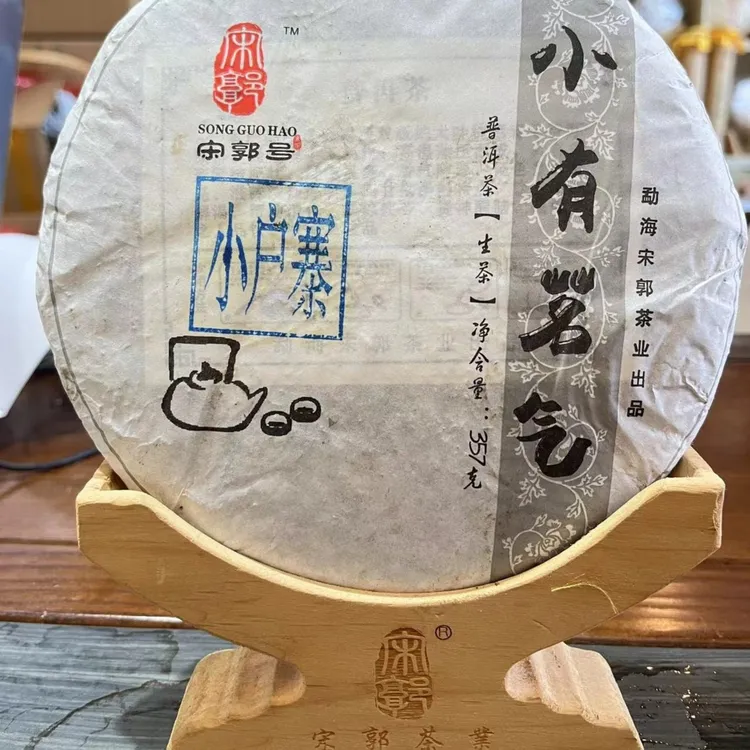 宋郭
TM
SONG GUO HAO
宋郭号
小户寨
普洱茶【生茶】净含量：357克
小有茗气
勐海宋郭茶业出品
宋郭
®
宋郭茶業